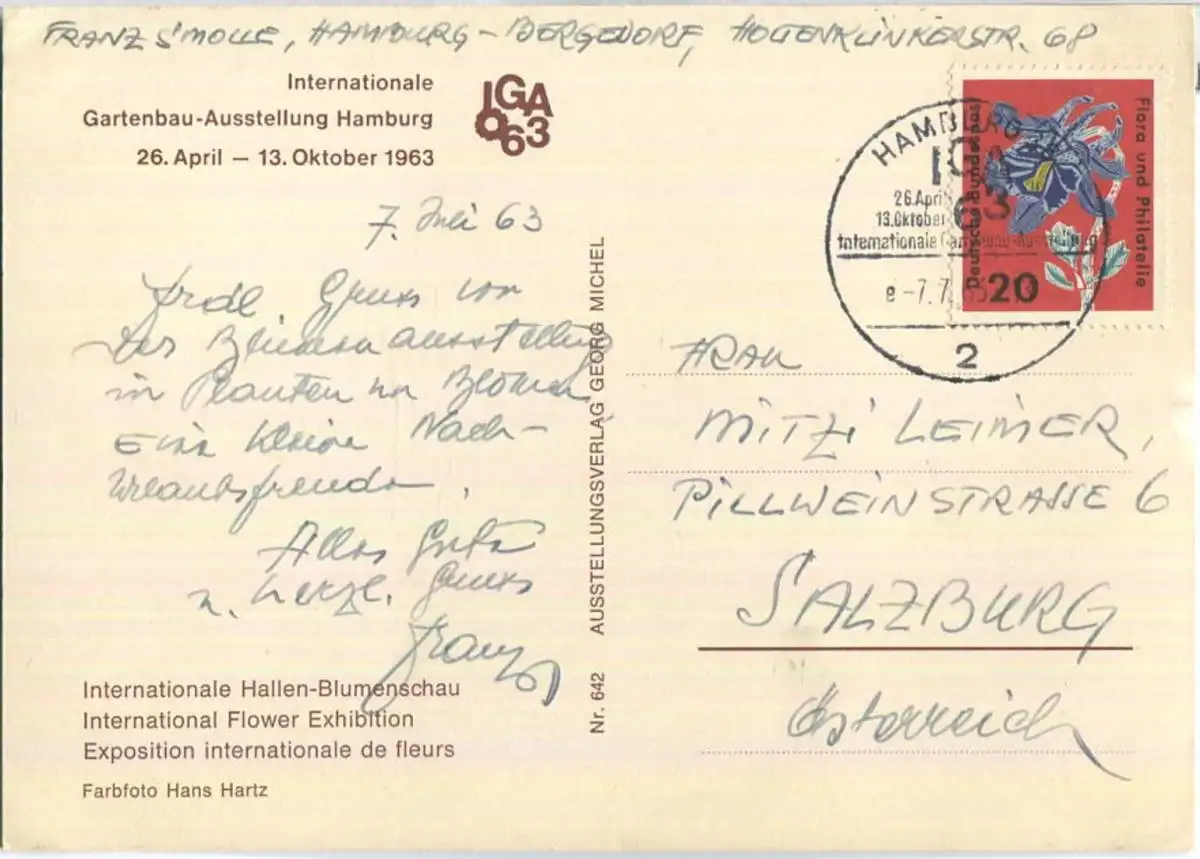 FRANZ SIMOLLE, HAMBURG - BERGEDORF, HOLTENKLINKERSTR. 68
Internationale
Gartenbau-Ausstellung Hamburg
26. April – 13. Oktober 1963
IGA
63
7. Juli 63
Frdl. Gruss von
der Blumenausstellung
in Planten un Blomen
Eine kleine Nach-
urlaubsfreude.
Alles Gute
u. herzl. Gruss
Franz
Internationale Hallen-Blumenschau
International Flower Exhibition
Exposition internationale de fleurs
Farbfoto Hans Hartz
Nr. 642 AUSSTELLUNGSVERLAG GEORG MICHEL
HAMBURG
IGA
63
26. April
13. Oktober
Internationale Gartenbau-Ausstellung
e -7.7. 63
2
Deutsche Bundespost
20
Flora und Philatelie
FRAU
MITZI LEIMER,
PILLWEINSTRASSE 6
SALZBURG
Österreich